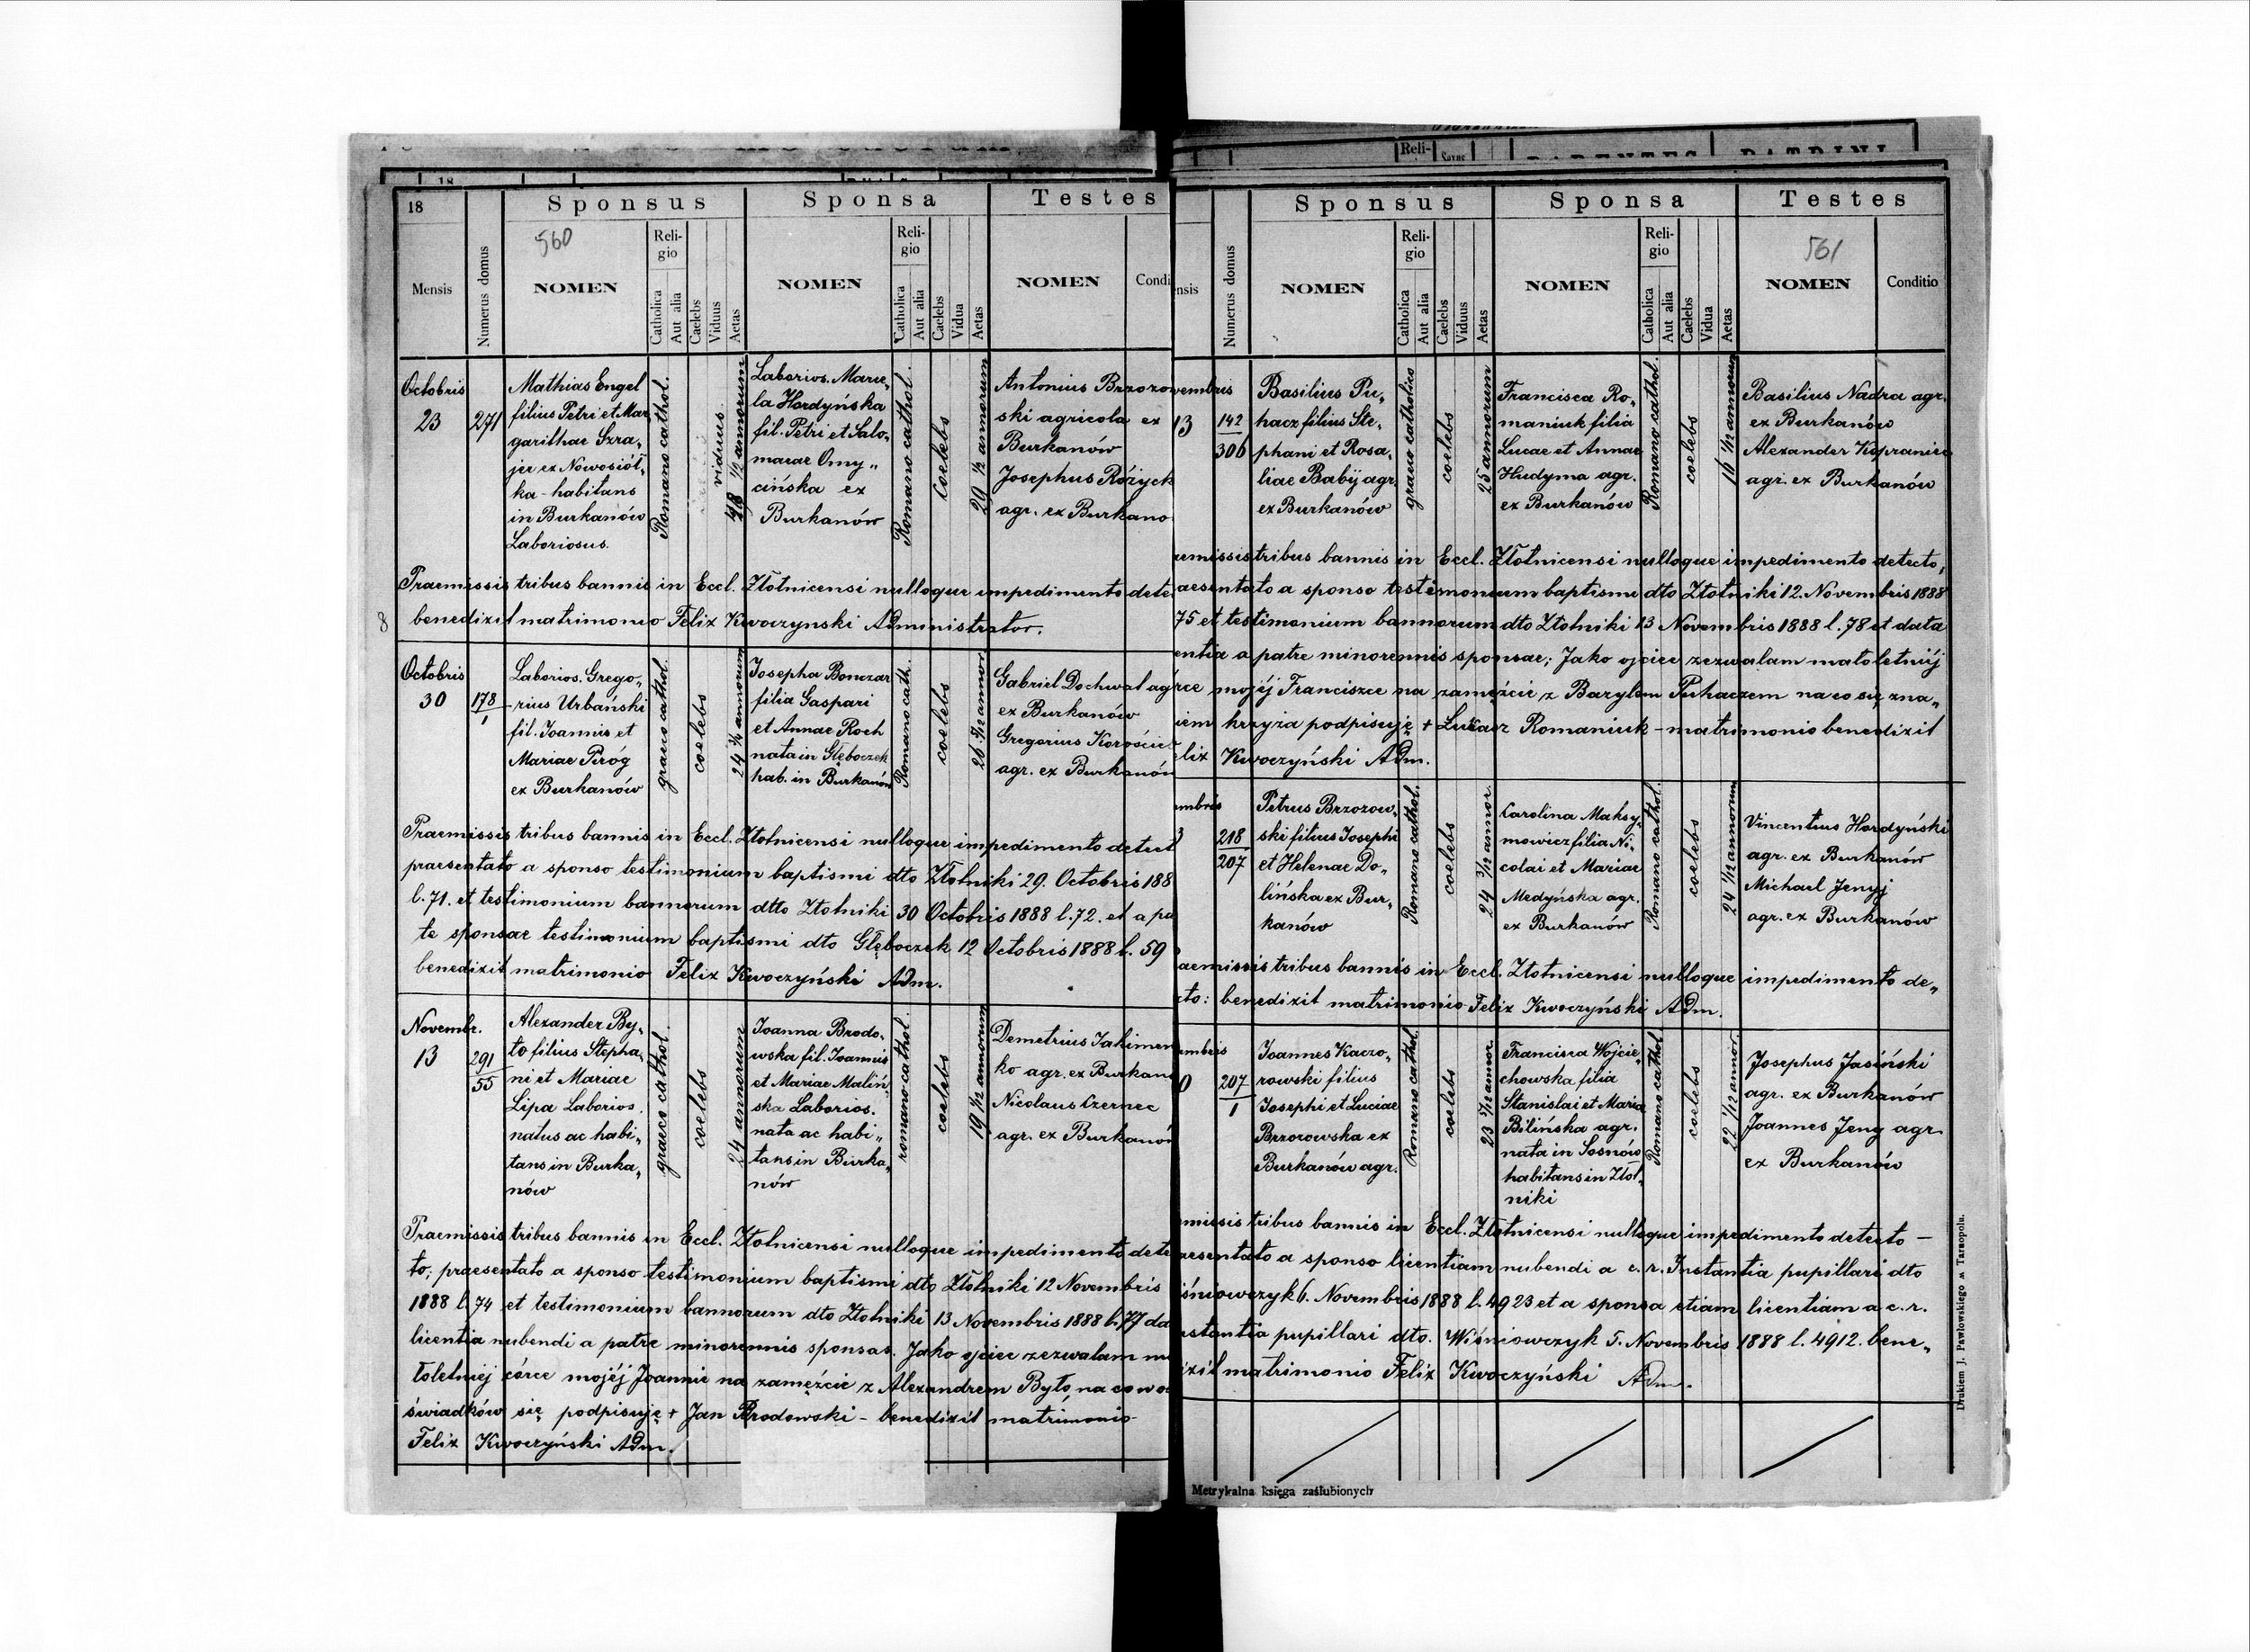 18
Sponsus
Sponsa
Testes
560
Mensis
Numerus domus
NOMEN
Religio
Catholica
Aut alia
Caelebs
Viduus
Aetas
NOMEN
Religio
Catholica
Aut alia
Caelebs
Vidua
Aetas
NOMEN
Condi
Octobris
23
271
Mathias Engel
filius Petri et Mar
garithae Szra„
jer ex Nowosiół„
ka - habitans
in Burkanów
Laboriosus.
Romano cathol.
viduus
48 ½ annorum
Laborios. Marce„
la Hordyńska
fil. Petri et Salo„
meae Omy„
cińska ex
Burkanów
Romano cathol.
Coelebs
29 ½ annorum
Antonius Brzozow
ski agricola ex
Burkanów
Josephus Różyck
agr. ex Burkano
Praemissis tribus bannis in Eccl. Złotnicensi nulloque impedimento dete
benedixit matrimonio Felix Kwoczynski Administrator.
8
Octobris
30
178
1
Laborios. Grego„
rius Urbański
fil. Joannis et
Mariae Piróg
ex Burkanów
graeco cathol.
coelebs
24 ¾ annorum
Josepha Bonczar
filia Gaspari
et Annae Roch
nata in Głęboczek
hab. in Burkanów
Romano cath.
coelebs
Gabriel Dochwat ag
ex Burkanów
Gregorius Korościel
agr. ex Burkanów
Praemissis tribus bannis in Eccl. Złotnicensi nulloque impedimento detect
praesentato a sponso testimonium baptismi dto Złotniki 29. Octobris 188
l. 71. et testimonium bannorum dtto Złotniki 30 Octobris 1888 l. 72. et a pa
te sponsae testimonium baptismi dto Głęboczek 12 Octobris 1888 l. 59
benedixit matrimonio Felix Kwoczyński Adm.
Novembr.
13
291
55
Alexander By„
to filius Stepha„
ni et Mariae
Lipa Laborios.
natus ac habi„
tans in Burka„
nów
graeco cathol.
coelebs
24 annorum
Joanna Brodo„
wska fil. Joannis
et Mariae Maliń„
ska Laborios.
nata ac habi„
tans in Burka„
nów
romano cathol.
coelebs
19 ½ annorum
Demetrius Jakimen
ko agr. ex Burkan
Nicolaus Czernec
agr. ex Burkanów
Praemissis tribus bannis in Eccl. Złotnicensi nulloque impedimento dete
to; praesentato a sponso testimonium baptismi dto Złotniki 12 Novembris
1888 l. 74 et testimonium bannorum dto Złotniki 13 Novembris 1888 l. 77 da
licentia nubendi a patre minorennis sponsae. Jako ojciec zezwalam ma
łoletniéj córce mojéj Joannie na zamęźcie z Alexandrem Byto, na co wo
świadków się podpisuję + Jan Brodowski - benedixit matrimonio
Felix Kwoczyński Adm.
Reli-
PARENTES
PATRINI
Sponsus
Sponsa
Testes
561
nsis
Numerus domus
NOMEN
Religio
Catholica
Aut alia
Caelebs
Viduus
Aetas
NOMEN
Religio
Catholica
Aut alia
Caelebs
Vidua
Aetas
NOMEN
Conditio
vembris
13
142
306
Basilius Pu„
hacz filius Ste„
phani et Rosa„
liae Babÿ agr.
ex Burkanów
graeco catholica
coelebs
25 annorum
Francisca Ro„
maniuk filia
Lucae et Annae
Hudyma agr.
ex Burkanów
Romano cathol.
coelebs
Basilius Nadra agr.
ex Burkanów
Alexander Kopraniec
agr. ex Burkanów
aemissis tribus bannis in Eccl. Złotnicensi nulloque impedimento detecto,
raesentato a sponso testimonium baptismi dto Złotniki 12. Novembris 1888
75 et testimonium bannorum dto Złotniki 13 Novembris 1888 l. 78 et data
entia a patre minorennis sponsae; Jako ojciec zezwalam małoletniéj
rce mojéj Franciszce na zamęźcie z Bazylem Puhaczem na co się zna„
iem krzyża podpisuję + Łukasz Romaniuk - matrimonio benedixit
elix Kwoczyński Adm.
embris
3
218
207
Petrus Brzozow„
ski filius Josephi
et Helenae Do„
lińska ex Bur„
kanów
Romano cathol.
coelebs
24 3/12 annor.
Carolina Maksy„
mowicz filia Ni„
colai et Mariae
Medyńska agr.
ex Burkanów
Romano cathol.
coelebs
24 1/12 annorum
Vincentius Hordyński
agr. ex Burkanów
Michael Jenyj
agr. ex Burkanów
aemissis tribus bannis in Eccl. Złotnicensi nulloque impedimento de„
cto: benedixit matrimonio Felix Kwoczyński Adm.
embris
0
207
1
Joannes Kaczo„
rowski filius
Josephi et Luciae
Brzozowska ex
Burkanów agr.
Romano cathol.
coelebs
23 5/12 annor.
Francisca Wojcie„
chowska filia
Stanislai et Maria
Bilińska agr.
nata in Sosnów
habitans in Złot„
niki
Romano cathol
coelebs
22 1/12 annor.
Josephus Jasiński
agr. ex Burkanów
Joannes Jeny agr
ex Burkanów
emissis tribus bannis in Eccl. Złotnicensi nulloque impedimento detecto -
aesentato a sponso licentiam nubendi a c. r. Instantia pupillari dto
iśniowczyk 6. Novembris 1888 l. 4923 et a sponsa etiam licentiam a c. r.
nstantia pupillari dto. Wiśniowczyk 5. Novembris 1888 l. 4912. bene„
ixit matrimonio Felix Kwoczyński Adm.
Metrykalna księga zaślubionych
Drukiem J. Pawłowskiego w Tarnopolu.